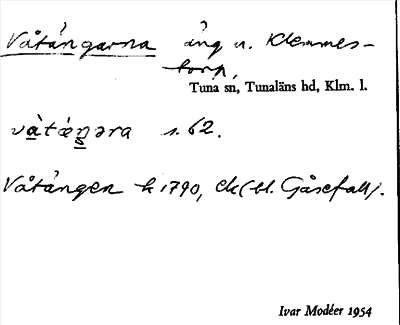 Våtángarna äng u. Klemmes-
torp,
Tuna sn, Tunaläns hd, Klm. l.
s. 62.
Våtängen k 1790, ek (bl. Gåsefall).
Ivar Modéer 1954